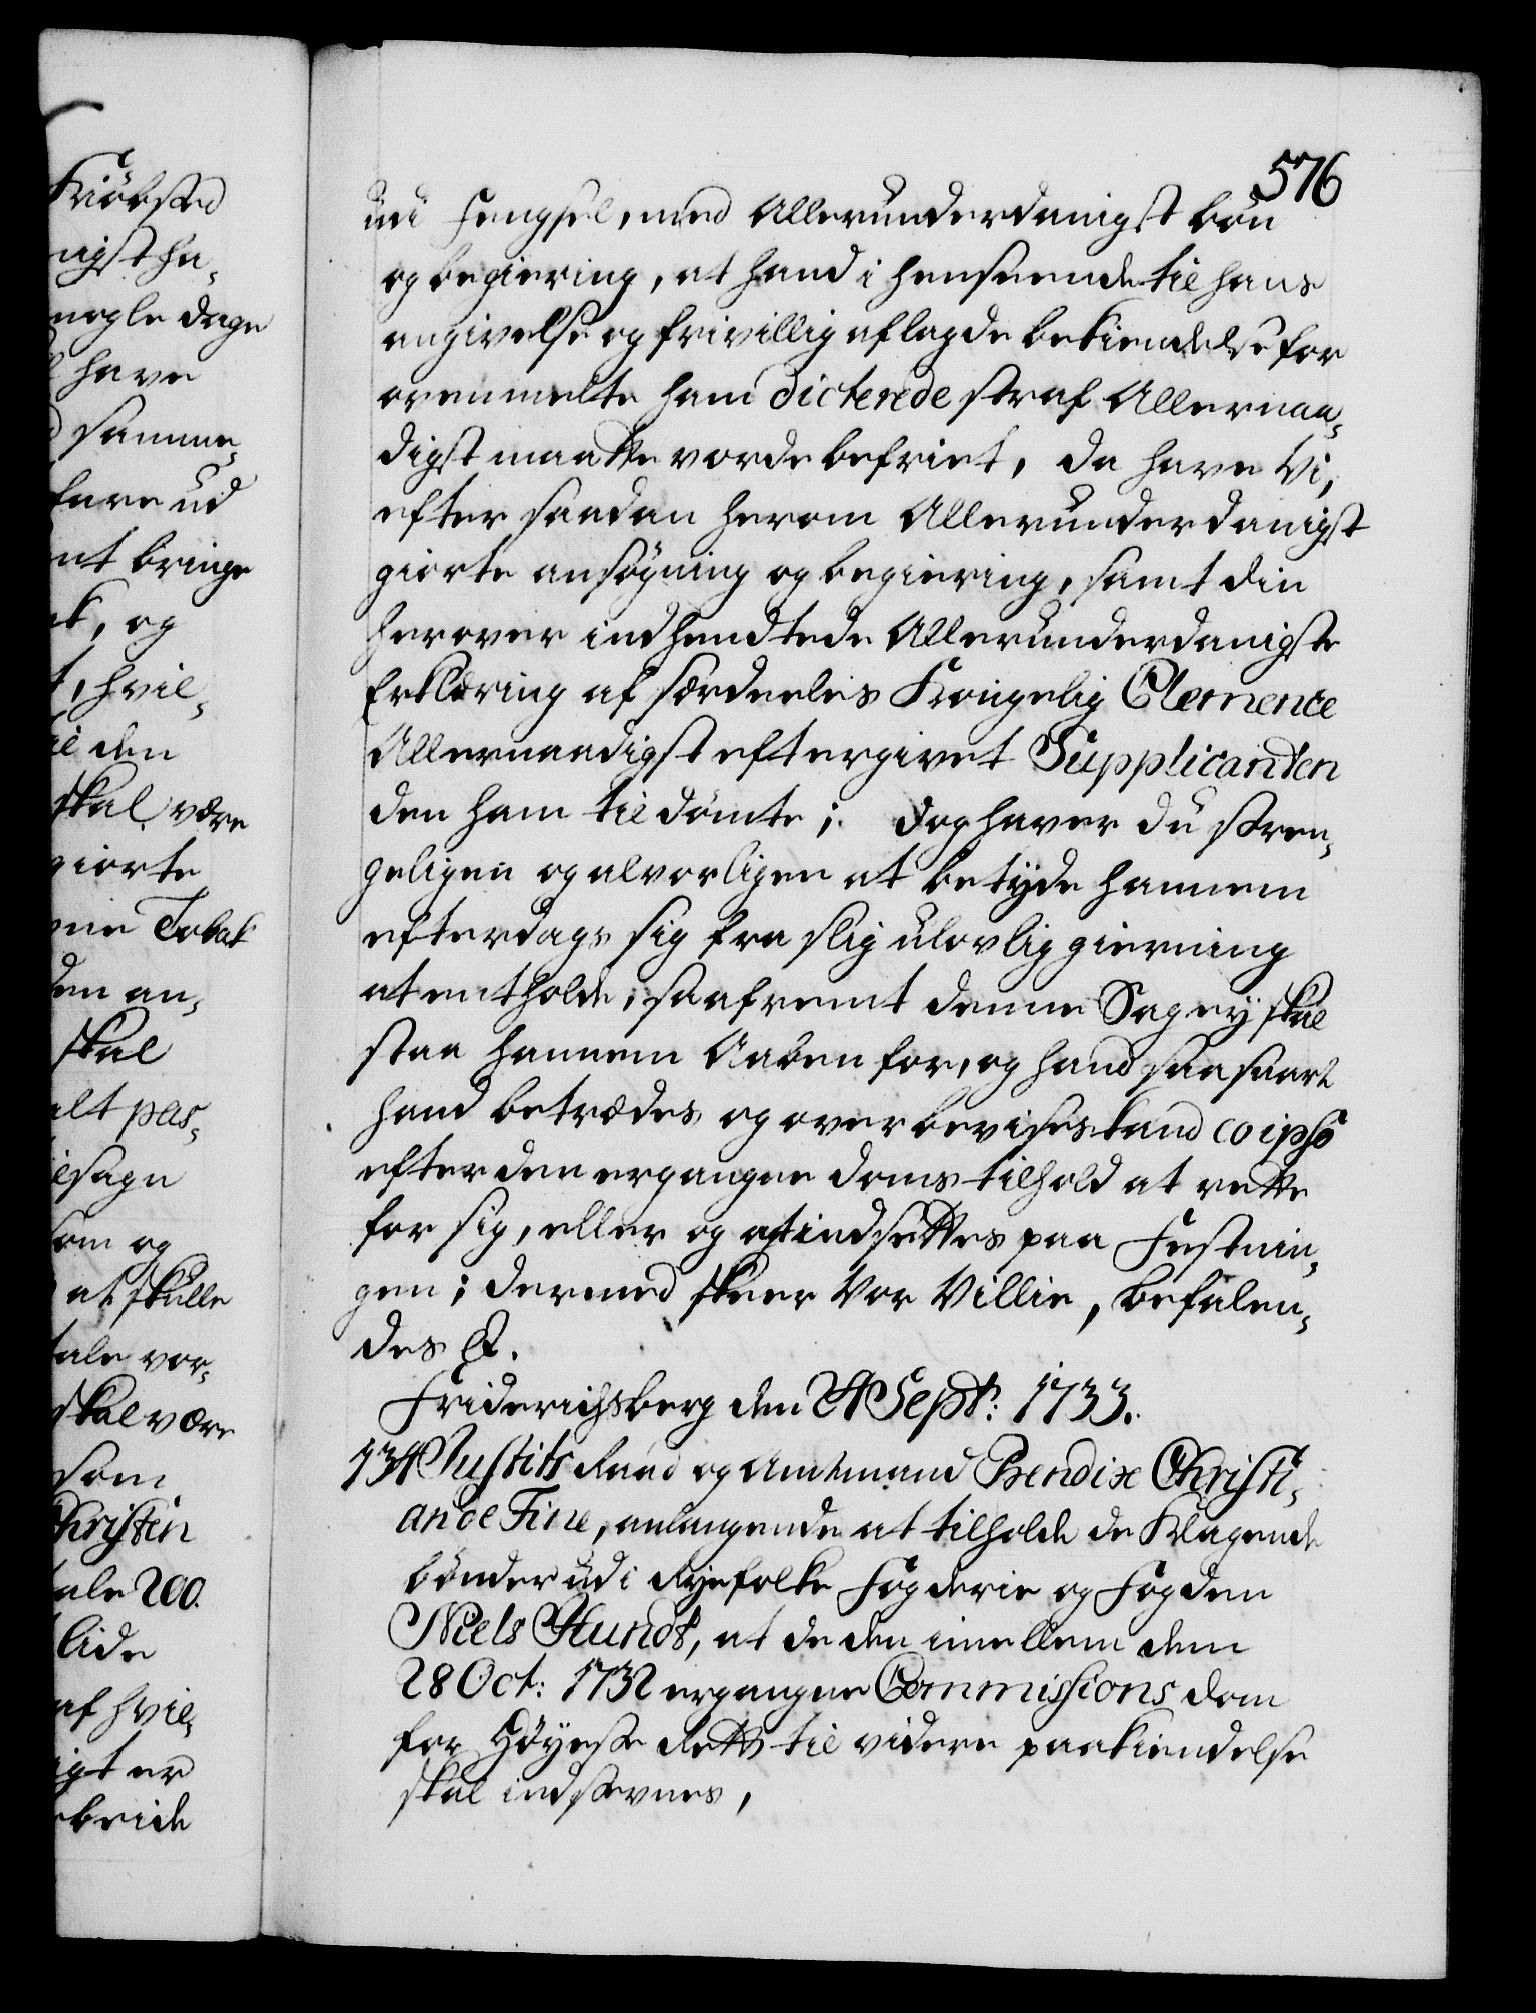 576
udi Fengsel, med Allerunderdanigst bøn
og begiering, at hand i henseende til hans
angivelse og frivillig aflagde bekiendelse for
ovenmelte ham dicterede straf Allernaa-
digst maatte vorde befriet, da have Vi,
efter saadan herom Allerunderdanigst
giorte ansøgning og begiering, samt din
herover indhendtede Allerunderdanigste
Erklæring af særdeeles Kongelig Clemence
Allernaadigst eftergivet Supplicanten
den ham til dømte; dog haver du stren-
geligen og alvorligen at betyde hannem
efterdags sig fra slig ulovlig gierning
at entholde, saafremt denne Sag ey skal
staa hannem Aaben for, og hand saa snart
hand betrædes og overbevises kand eo ipso
efter den ergangne doms tilhold at rette
for sig, eller og at indsettes paa Festnin-
gen; dermed skeer Vor Villie, befalen-
des &.
Friderichsberg den 24 Septr: 1733.
134 Justits Raad og Amtmand Bendix Christi-
an de Fine, anlangende at tilholde de Klagende
bønder udi Ryefolke Fogderie og Fogden
Niels Hundt, at de den imellem dem
28 Oct: 1732 ergangne Commissions dom
for Høyeste Rett til videre paakiendelse
skal indstevnes,
Kiøbsted
nigst ha-
nogle dage
have
samme-
fare ud
nt bringe
k, og
t, hvil-
den
skal være
giorte
Tobak
den an-
skal
alt pas-
som og
at skulle
tale vor-
skal være
som
Christen
tale 200.
lide
af hvil-
igt er